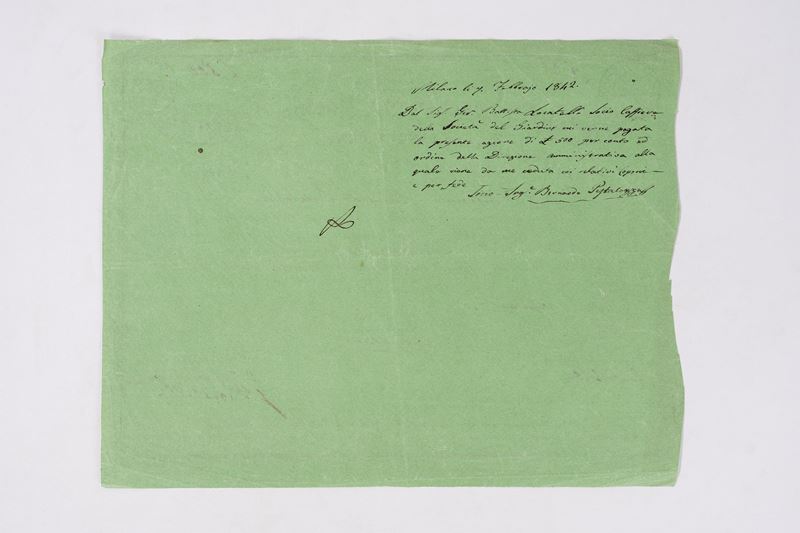 Milano li 7. Febbrajo 1842.
Dal Sig.r Gio. Batt.sta Locatelli Socio Cassiere
della Società del Giardino mi venne pagata
la presente azione di £ 500 per conto ed
ordine della Direzione amministrativa alla
quale viene da me ceduta coi relativi
e per fede
Ing.r Bernardo Pestalozza